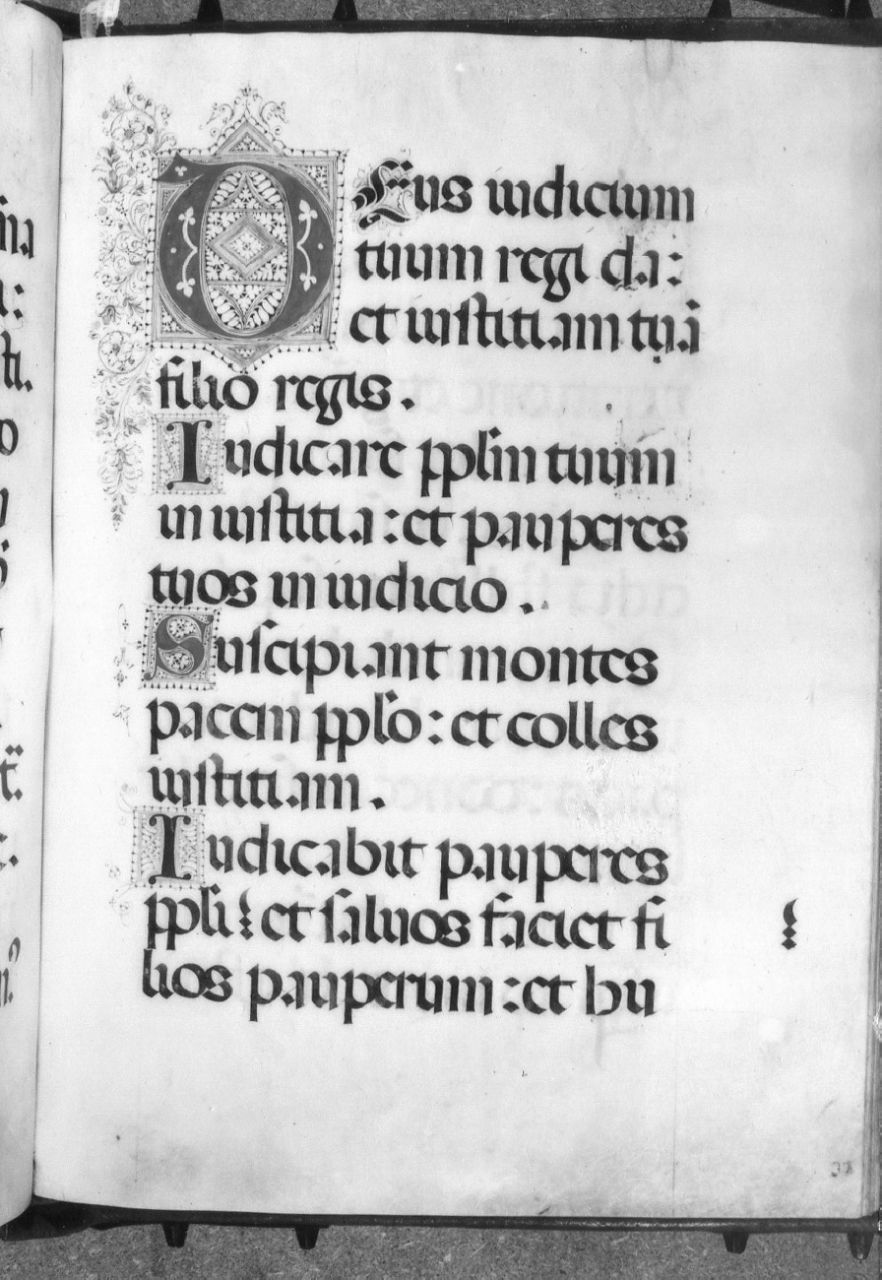 DEus iudicium
tuum regi da:
et iustitiam tuā
filio regis.
Iudicare pplm̄ tuum
in iustitia: et pauperes
tuos in iudicio.
Suscipiant montes
pacem pplo: et colles
iustitiam.
Iudicabit pauperes
ppli: et saluos faciet fi
lios pauperum: et hu